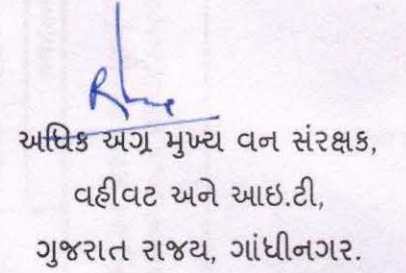 અધિક અગ્ર મુખ્ય વન સંરક્ષક,
વહીવટ અને આઇ.ટી,
ગુજરાત રાજય, ગાંધીનગર.